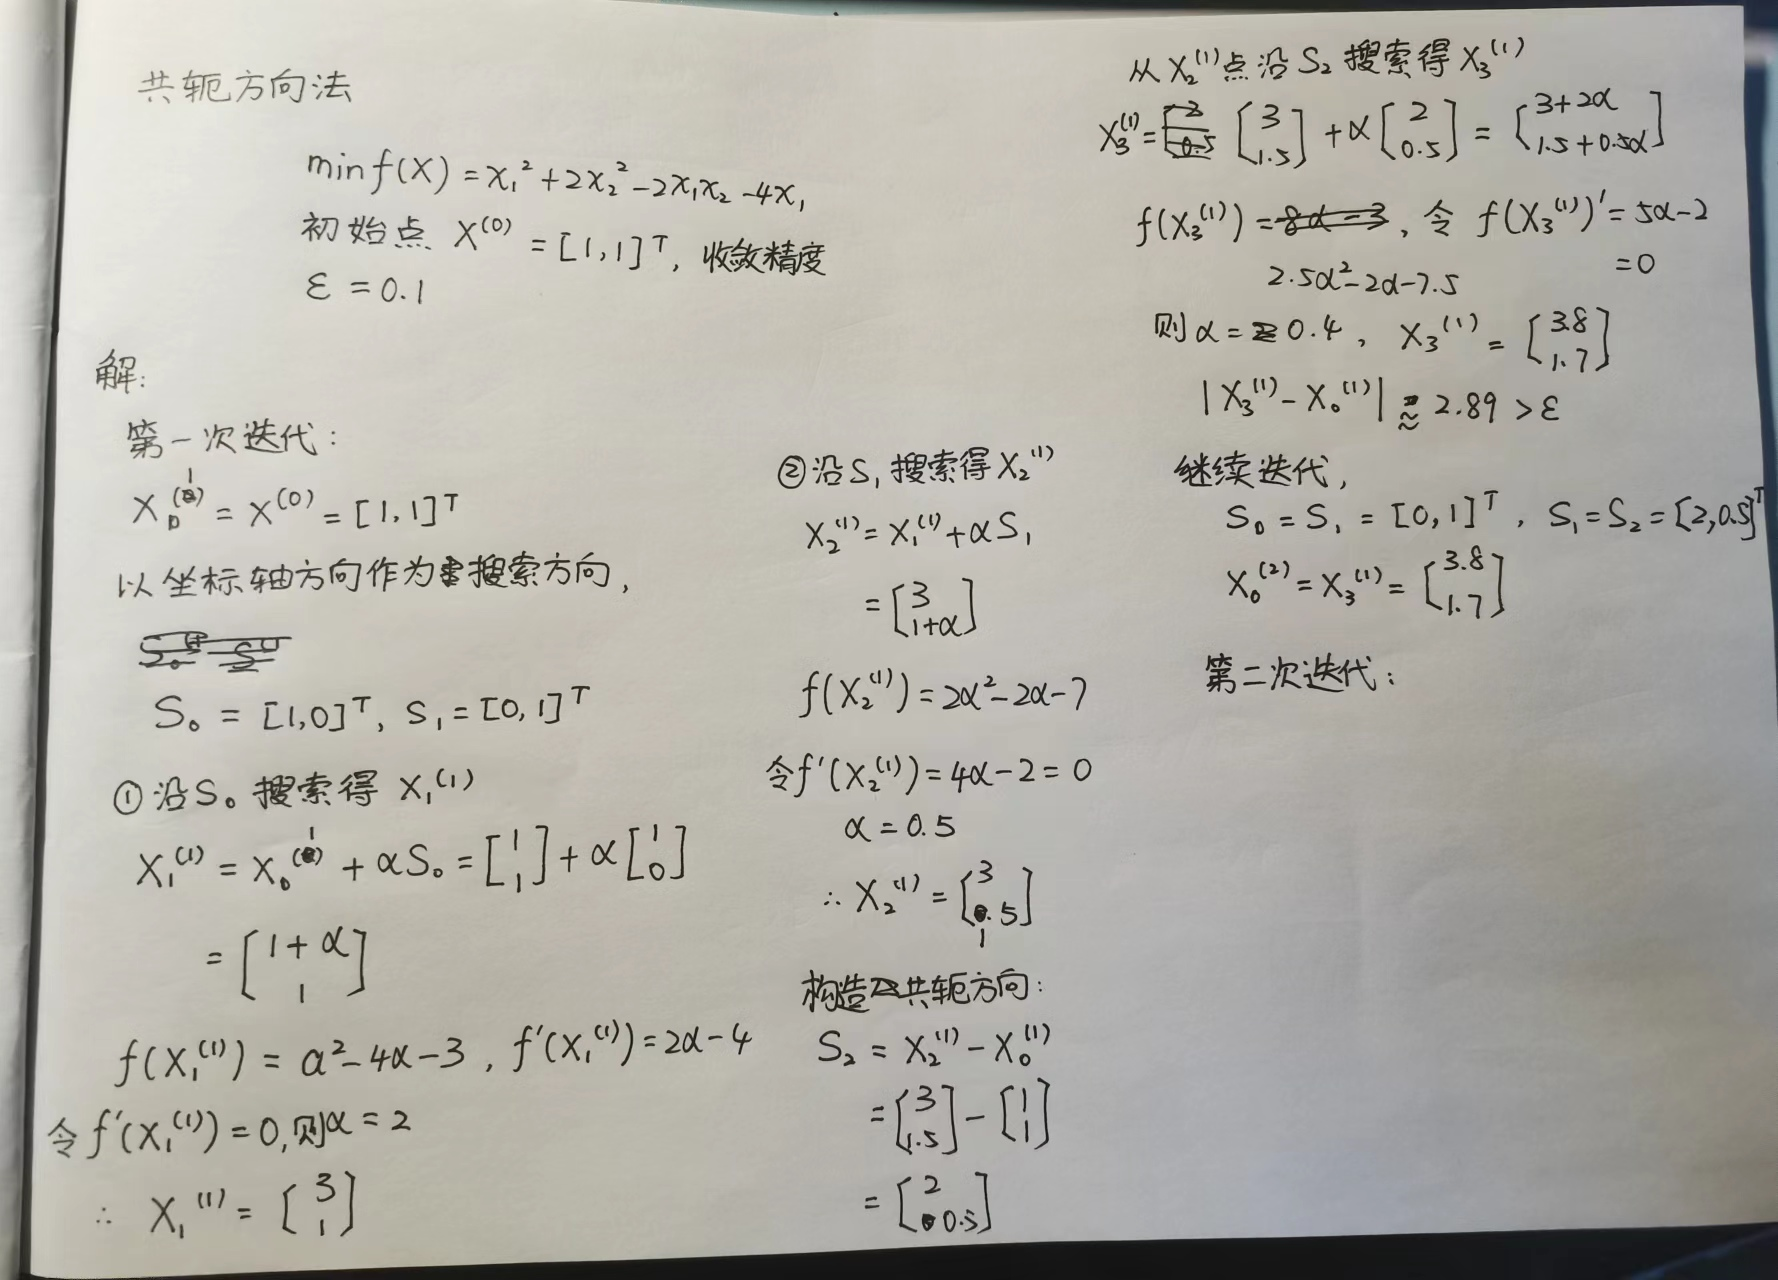 共轭方向法
min f(X) = x₁² + 2x₂² - 2x₁x₂ - 4x₁
初始点 X⁽⁰⁾ = [1,1]ᵀ, 收敛精度
ε = 0.1
解:
第一次迭代:
X₀⁽¹⁾ = X⁽⁰⁾ = [1,1]ᵀ
以坐标轴方向作为搜索方向,
S₀ = [1,0]ᵀ, S₁ = [0,1]ᵀ
①沿S₀搜索得 X₁⁽¹⁾
X₁⁽¹⁾ = X₀⁽¹⁾ + αS₀ = [1 1] + α[1 0]
= [1+α 1]
f(X₁⁽¹⁾) = α² - 4α - 3, f'(X₁⁽¹⁾) = 2α - 4
令 f'(X₁⁽¹⁾) = 0, 则α = 2
∴ X₁⁽¹⁾ = [3 1]
②沿S₁搜索得X₂⁽¹⁾
X₂⁽¹⁾ = X₁⁽¹⁾ + αS₁
= [3 1+α]
f(X₂⁽¹⁾) = 2α² - 2α - 7
令f'(X₂⁽¹⁾) = 4α - 2 = 0
α = 0.5
∴ X₂⁽¹⁾ = [3 1.5]
构造共轭方向:
S₂ = X₂⁽¹⁾ - X₀⁽¹⁾
= [3 1.5] - [1 1]
= [2 0.5]
从X₂⁽¹⁾点沿S₂搜索得X₃⁽¹⁾
X₃⁽¹⁾ = [3 1.5] + α[2 0.5] = [3+2α 1.5+0.5α]
f(X₃⁽¹⁾) = 8α - 3, 令 f(X₃⁽¹⁾)' = 5α - 2
2.5α² - 2α - 7.5 = 0
则α = 0.4, X₃⁽¹⁾ = [3.8 1.7]
|X₃⁽¹⁾ - X₀⁽¹⁾| ≈ 2.89 > ε
继续迭代,
S₀ = S₁ = [0,1]ᵀ, S₁ = S₂ = [2,0.5]ᵀ
X₀⁽²⁾ = X₃⁽¹⁾ = [3.8 1.7]
第二次迭代: